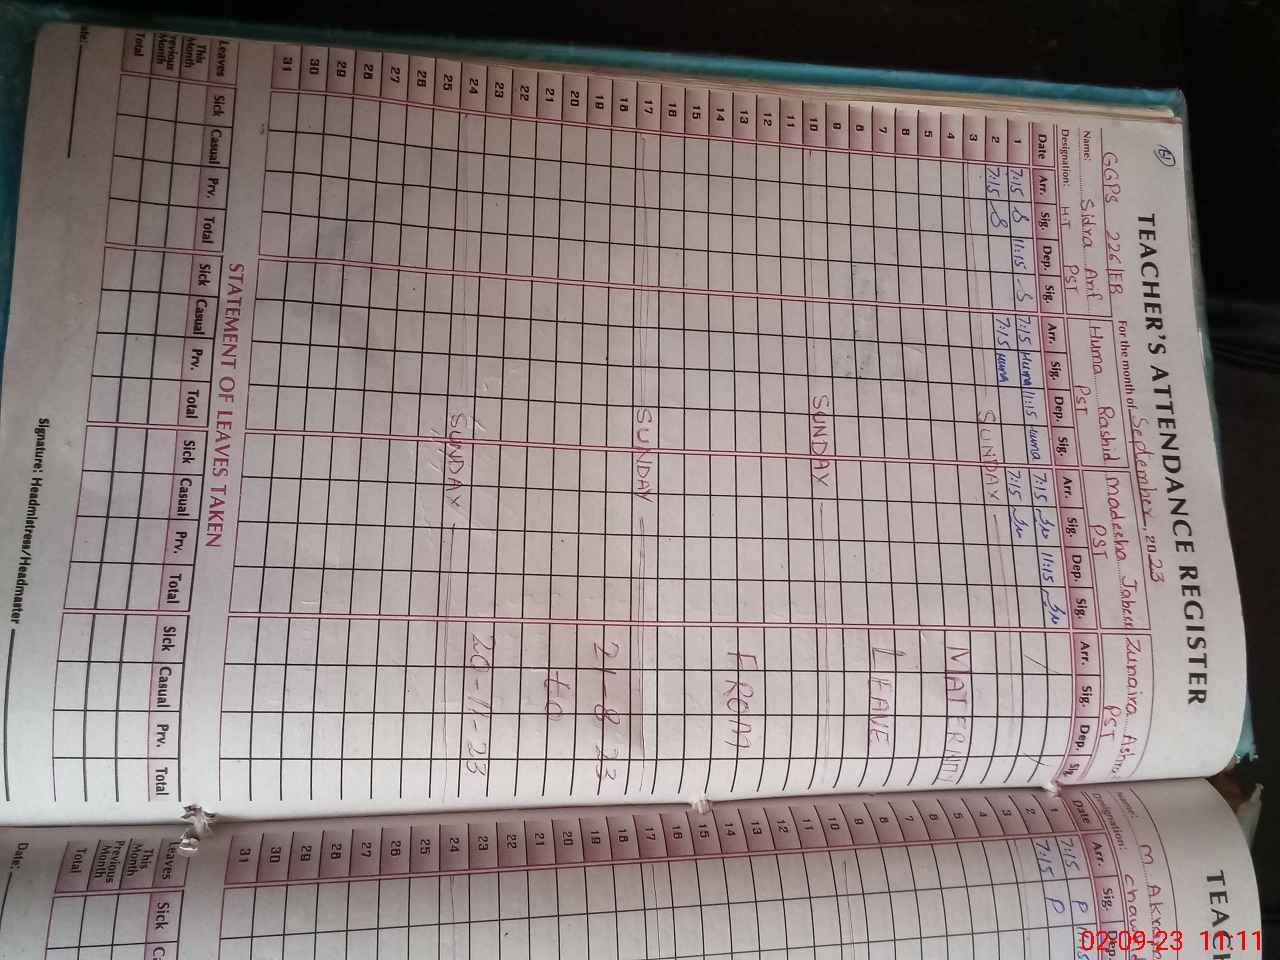 61
TEACHER'S ATTENDANCE REGISTER
GGPS 226/EB For the month of September, 2023
Name: Sidra Arif Huma Rashid Madeeha Jabeen Zunaira
Designation: H.T PST PST PST PST
Date Arr. Sig. Dep. Sig. Arr. Sig. Dep. Sig. Arr. Sig. Dep. Sig. Arr. Sig. Dep. Sig.
1 7:15 11:15 7:15 Huma 11:15 Huma 7:15 11:15
2 7:15 7:15 Huma 7:15
3 SUNDAY
4 MATERNITY
5
6
7 LEAVE
8
9
10 SUNDAY
11
12
13 FROM
14
15
16
17 SUNDAY
18 21-8-23
19
20 to
21
22
23 20-11-23
24 SUNDAY
25
26
27
28
29
30
31
STATEMENT OF LEAVES TAKEN
Leaves Sick Casual Prv. Total Sick Casual Prv. Total Sick Casual Prv. Total Sick Casual Prv. Total
This Month
Previous Month
Total
Signature: Headmistress/Headmaster
Name: M Akram
Designation:
Date Arr. Sig. Dep.
1 7:15 P
2 7:15 P
3
4
5
6
7
8
9
10
11
12
13
14
15
16
17
18
19
20
21
22
23
24
25
26
27
28
29
30
31
Leaves Sick
This Month
Previous Month
Total
Date:
02-09-23 11:11